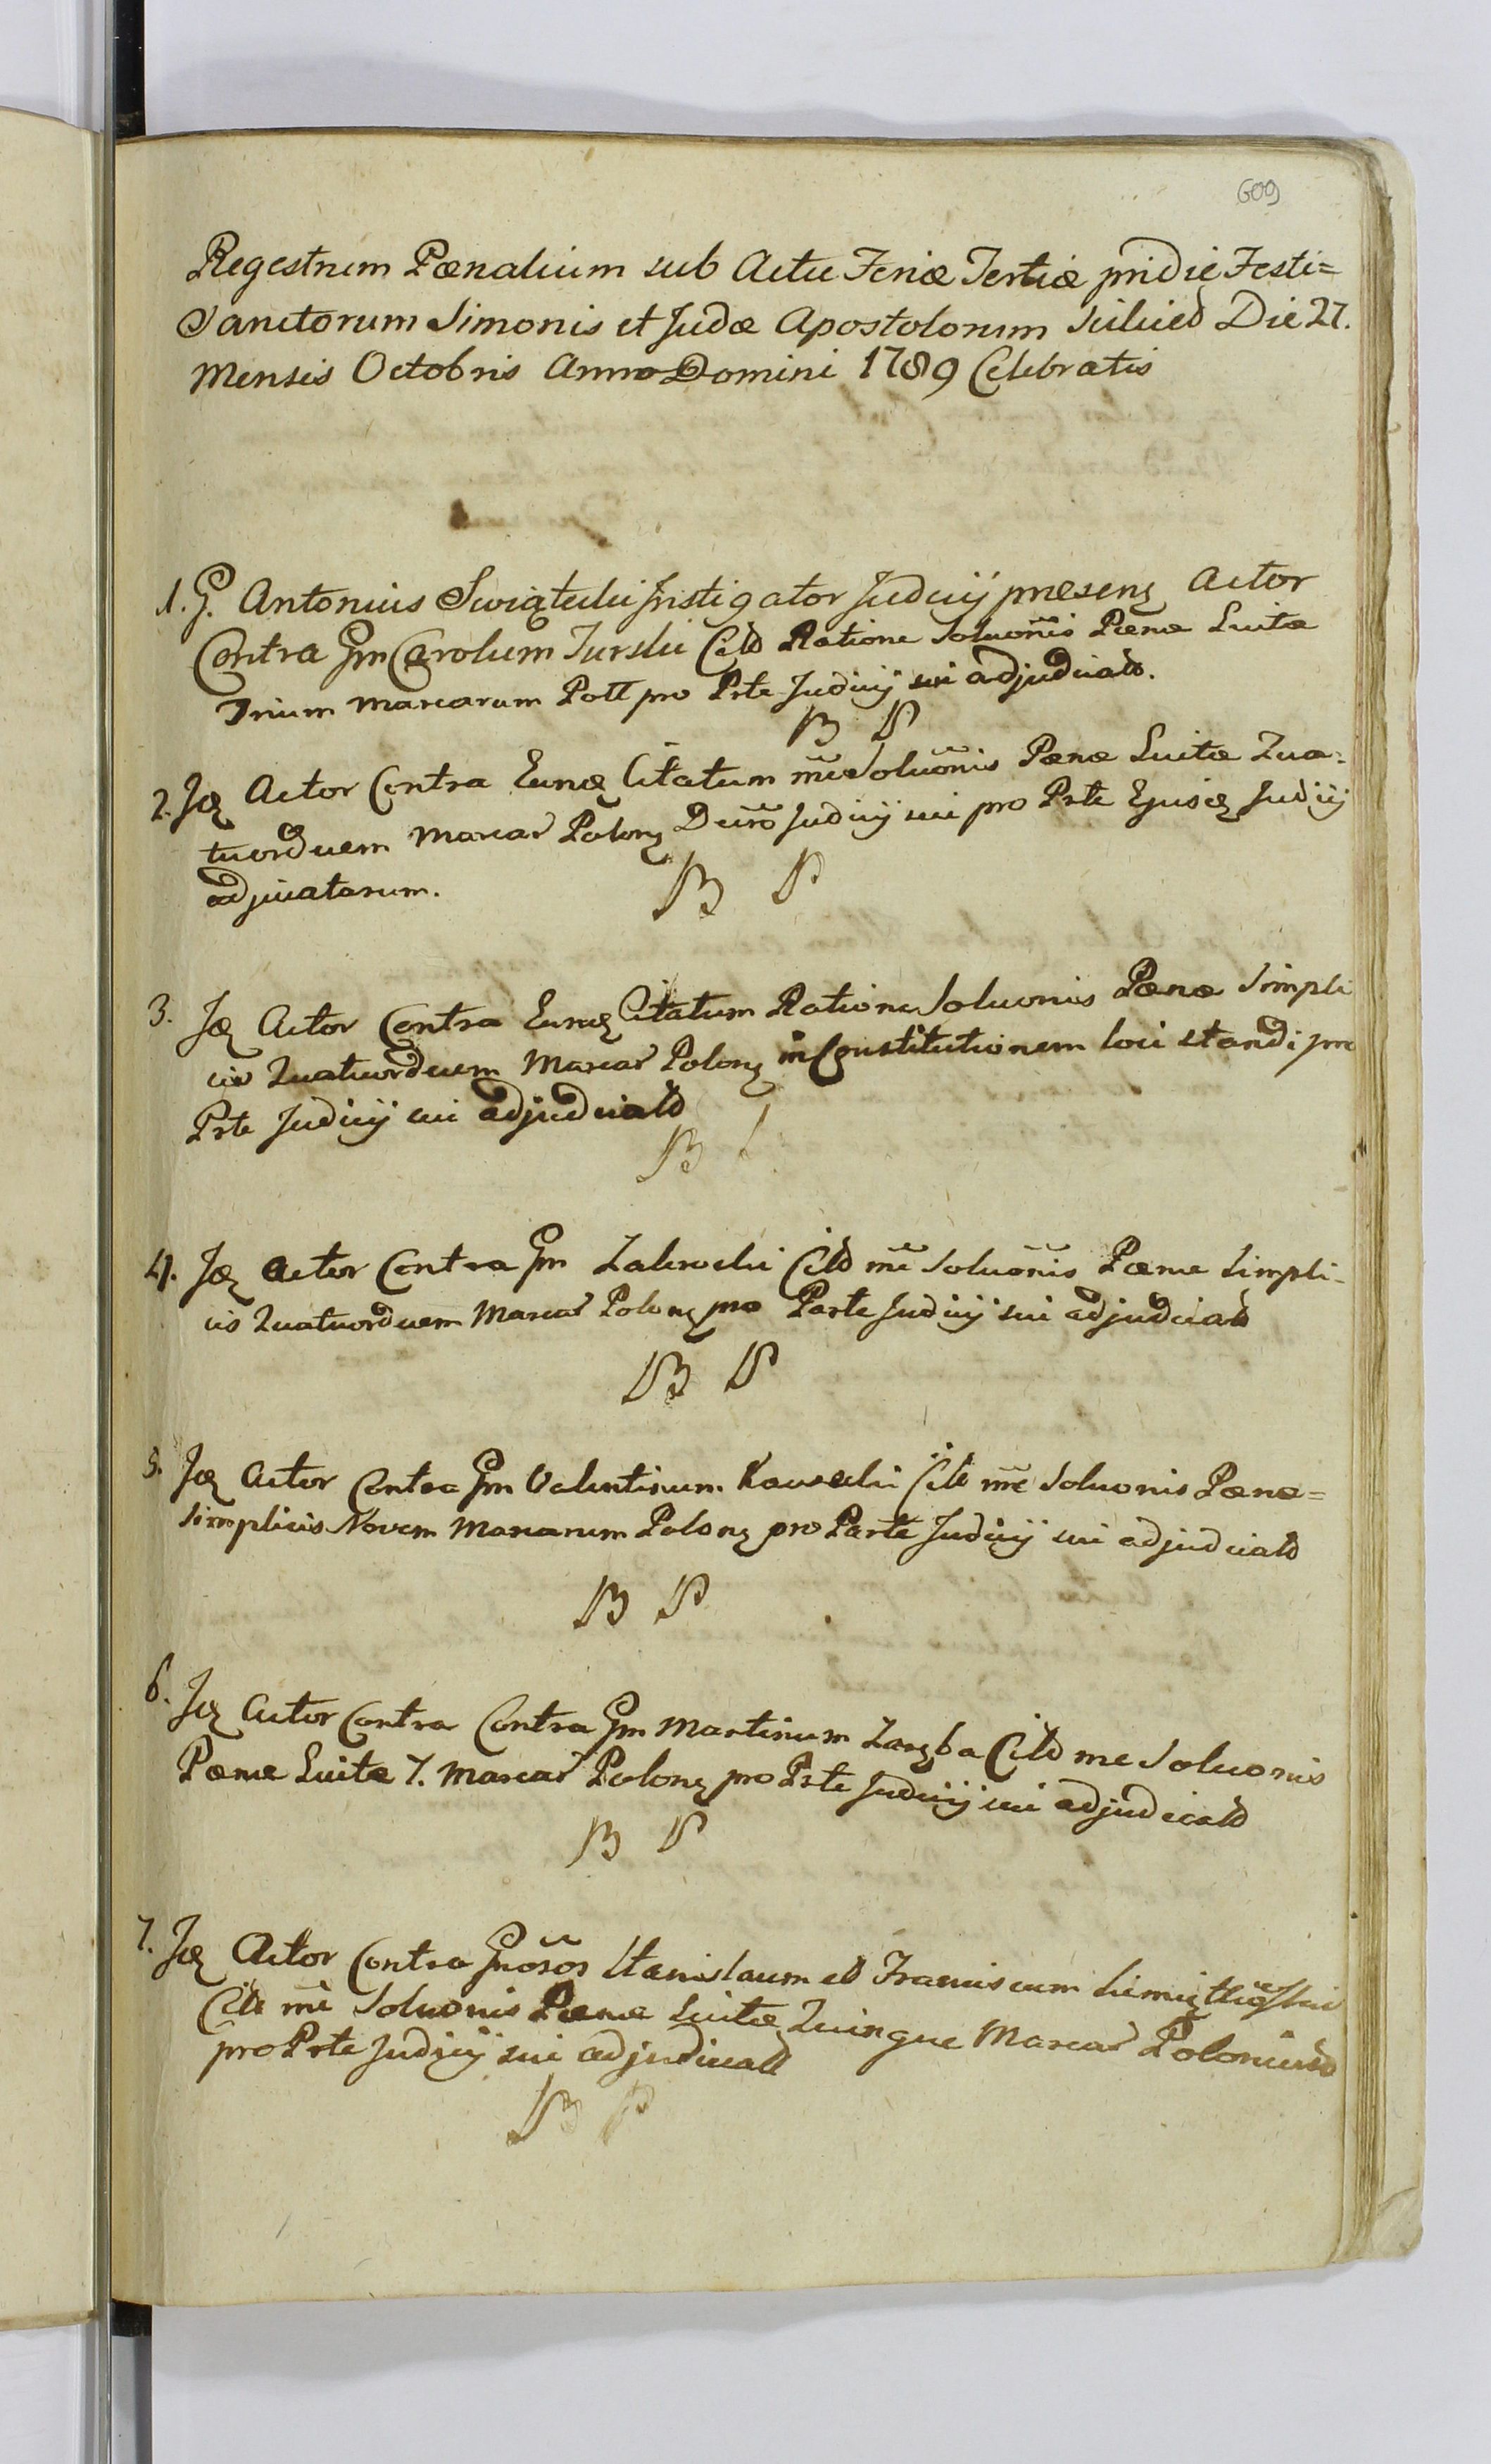 609
Regestrum Pœnalium sub Actu Feriæ Tertiæ pridie Festi=
Sanctorum Simonis et Judæ Apostolorum Die 27.
Mensis Octobris Anno Domini 1789 Celebratis
1. G. Antonius Swiątecki Instigator Judicij præsenz Actor
Contra Gm Carolum Turski Citd Ratione Soluonis Pænæ Luitæ
Trium Marcarum Poll pro Prte Judicij sui adjudicatd.
B P
2. Jdz Actor Contra Eundz Citatum rne Soluonis Pænæ Luitæ Qua=
tuordecem Marcar Polonz Judicij sui pro Prte Ejusdz Judicij
adjucatarum.
B P
3. Jdz Actor Contra Eundz Citatum Ratione Soluonis Pænæ Simpli
cis Quatuordecem Marcar Polonz in Constitutionem loci standi pro
Prte Judicij sui adjudicatd
B
4. Jdz Actor Contra Gm Citd rne Soluonis Pænæ Simpli-
cis Quatuordecem Marcar Polonz pro Parte Judicij sui adjudicatd
B P
5. Jdz Actor Contra Gm Valentinum Citd rne Soluonis Pænæ=
Simplicis Novem Marcarum Polonz pro Parte Judicij sui adjudicatd
B P
6. Jdz Actor Contra Contra Gm Martinum Zaręba Citd rne Soluonis
Pænæ Luitæ 7. Marcar Polonz pro Prte Judicij sui adjudicatd
B P
7. Jdz Actor Contra Gnosos Stanislaum et Franciscum
Citd rne Soluonis Pænæ Luitæ Quinque Marcar Polonicld
pro Prte Judicij sui adjudicatd
B P